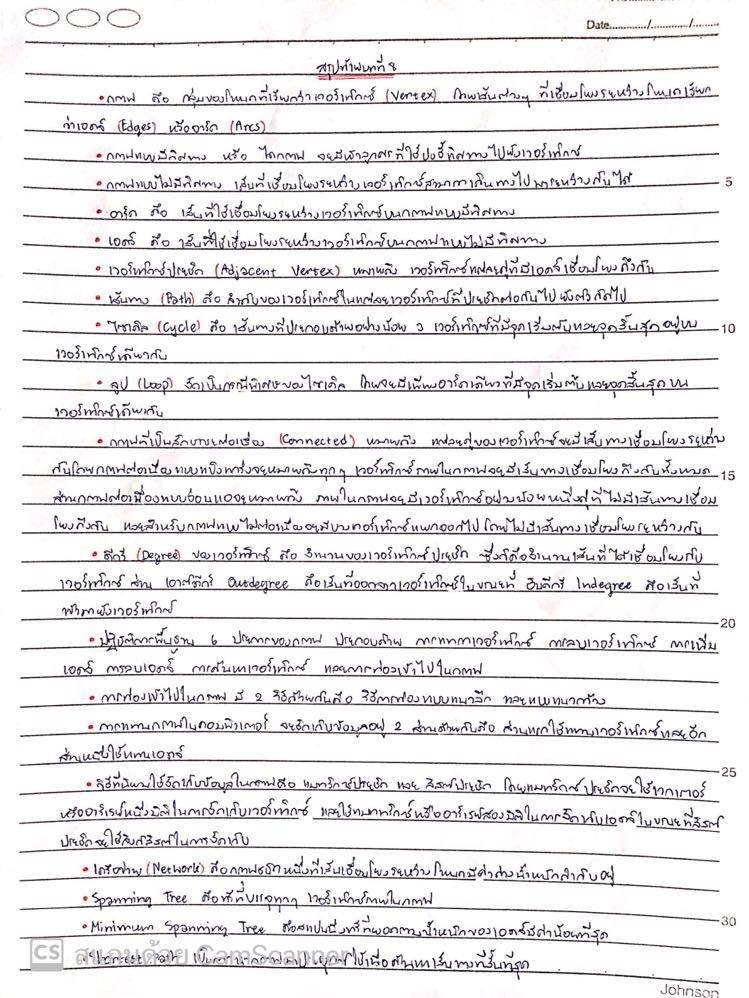 Date............/............/.........
สรุปท้ายบทที่ 8
• กราฟ คือ กลุ่มของโหนดที่เรียกว่าเวอร์เท็กซ์ (Vertex) โดยเส้นต่างๆ ที่เชื่อมโยงระหว่างโหนดเรียก
ว่าเอดจ์ (Edges) หรืออาร์ค (Arcs)
• กราฟแบบมีทิศทาง หรือ ไดกราฟ จะมีหัวลูกศรที่ใช้บ่งชี้ทิศทางไปยังเวอร์เท็กซ์
• กราฟแบบไม่มีทิศทาง เส้นที่เชื่อมโยงระหว่างเวอร์เท็กซ์สามารถเดินทางไปมาระหว่างกันได้
5
• อาร์ค คือ เส้นที่ใช้เชื่อมโยงระหว่างเวอร์เท็กซ์บนกราฟแบบมีทิศทาง
• เอดจ์ คือ เส้นที่ใช้เชื่อมโยงระหว่างเวอร์เท็กซ์บนกราฟแบบไม่มีทิศทาง
• เวอร์เท็กซ์ประชิด (Adjacent Vertex) หมายถึง เวอร์เท็กซ์แต่ละคู่ที่มีเอดจ์เชื่อมโยงถึงกัน
• เส้นทาง (Path) คือ ลำดับของเวอร์เท็กซ์ในแต่ละเวอร์เท็กซ์ที่ประชิดต่อกันไปยังตัวถัดไป
• ไซเคิล (Cycle) คือ เส้นทางที่ประกอบด้วยอย่างน้อย 3 เวอร์เท็กซ์ที่มีจุดเริ่มต้นและจุดสิ้นสุดอยู่บน
10
เวอร์เท็กซ์เดียวกัน
• ลูป (Loop) จัดเป็นกรณีพิเศษของไซเคิล โดยจะมีเพียงอาร์คเดียวที่มีจุดเริ่มต้นและจุดสิ้นสุดบน
เวอร์เท็กซ์เดียวกัน
• กราฟที่เป็นลักษณะต่อเนื่อง (Connected) หมายถึง แต่ละคู่ของเวอร์เท็กซ์จะมีเส้นทางเชื่อมโยงระหว่าง
กันโดยกราฟต่อเนื่องแบบแข็งแกร่งจะหมายถึงทุกๆ เวอร์เท็กซ์ภายในกราฟจะมีเส้นทางเชื่อมโยงถึงกันทั้งหมด
15
ส่วนกราฟต่อเนื่องแบบอ่อนแอจะหมายถึง ภายในกราฟจะมีเวอร์เท็กซ์อย่างน้อยหนึ่งคู่ที่ไม่มีเส้นทางเชื่อม
โยงถึงกัน และสำหรับกราฟแบบไม่ต่อเนื่องจะมีบางเวอร์เท็กซ์แยกออกไป โดยไม่มีเส้นทางเชื่อมโยงระหว่างกัน
• ดีกรี (Degree) ของเวอร์เท็กซ์ คือ จำนวนของเวอร์เท็กซ์ประชิด ซึ่งก็คือจำนวนเส้นที่ได้เชื่อมโยงกับ
เวอร์เท็กซ์ ส่วน เอาต์ดีกรี Outdegree คือเส้นที่ออกจากเวอร์เท็กซ์ในขณะที่ อินดีกรี Indegree คือเส้นที่
เข้ามายังเวอร์เท็กซ์
20
• ปฏิบัติการพื้นฐาน 6 ประการของกราฟ ประกอบด้วย การแทรกเวอร์เท็กซ์ การลบเวอร์เท็กซ์ การเพิ่ม
เอดจ์ การลบเอดจ์ การค้นหาเวอร์เท็กซ์ และการท่องเข้าไปในกราฟ
• การท่องเข้าไปในกราฟ มี 2 วิธีด้วยกันคือ วิธีการท่องแบบแนวลึก และแบบแนวกว้าง
• การแทนกราฟในคอมพิวเตอร์ จะจัดเก็บข้อมูลอยู่ 2 ส่วนด้วยกันคือ ส่วนแรกใช้แทนเวอร์เท็กซ์และอีก
ส่วนหนึ่งใช้แทนเอดจ์
25
• วิธีที่นิยมใช้จัดเก็บข้อมูลในกราฟคือ แมทริกซ์ประชิด และ ลิสต์ประชิด โดยแมทริกซ์ประชิดจะใช้เวกเตอร์
หรืออาร์เรย์หนึ่งมิติในการจัดเก็บเวอร์เท็กซ์ และใช้แมทริกซ์หรืออาร์เรย์สองมิติในการจัดเก็บเอดจ์ในขณะที่ลิสต์
ประชิดจะใช้ลิงค์ลิสต์ในการจัดเก็บ
• เครือข่าย (Network) คือกราฟชนิดหนึ่งที่เส้นเชื่อมโยงระหว่างโหนดมีค่าถ่วงน้ำหนักกำกับอยู่
• Spanning Tree คือทรีที่บรรจุทุกๆ เวอร์เท็กซ์ภายในกราฟ
• Minimum Spanning Tree คือสแปนนิ่งทรีที่ผลรวมน้ำหนักของเอดจ์มีค่าน้อยที่สุด
30
• Shortest Path เป็นการนำกราฟมาประยุกต์ใช้เพื่อค้นหาเส้นทางที่สั้นที่สุด
CS สแกนด้วย CamScanner
Johnson